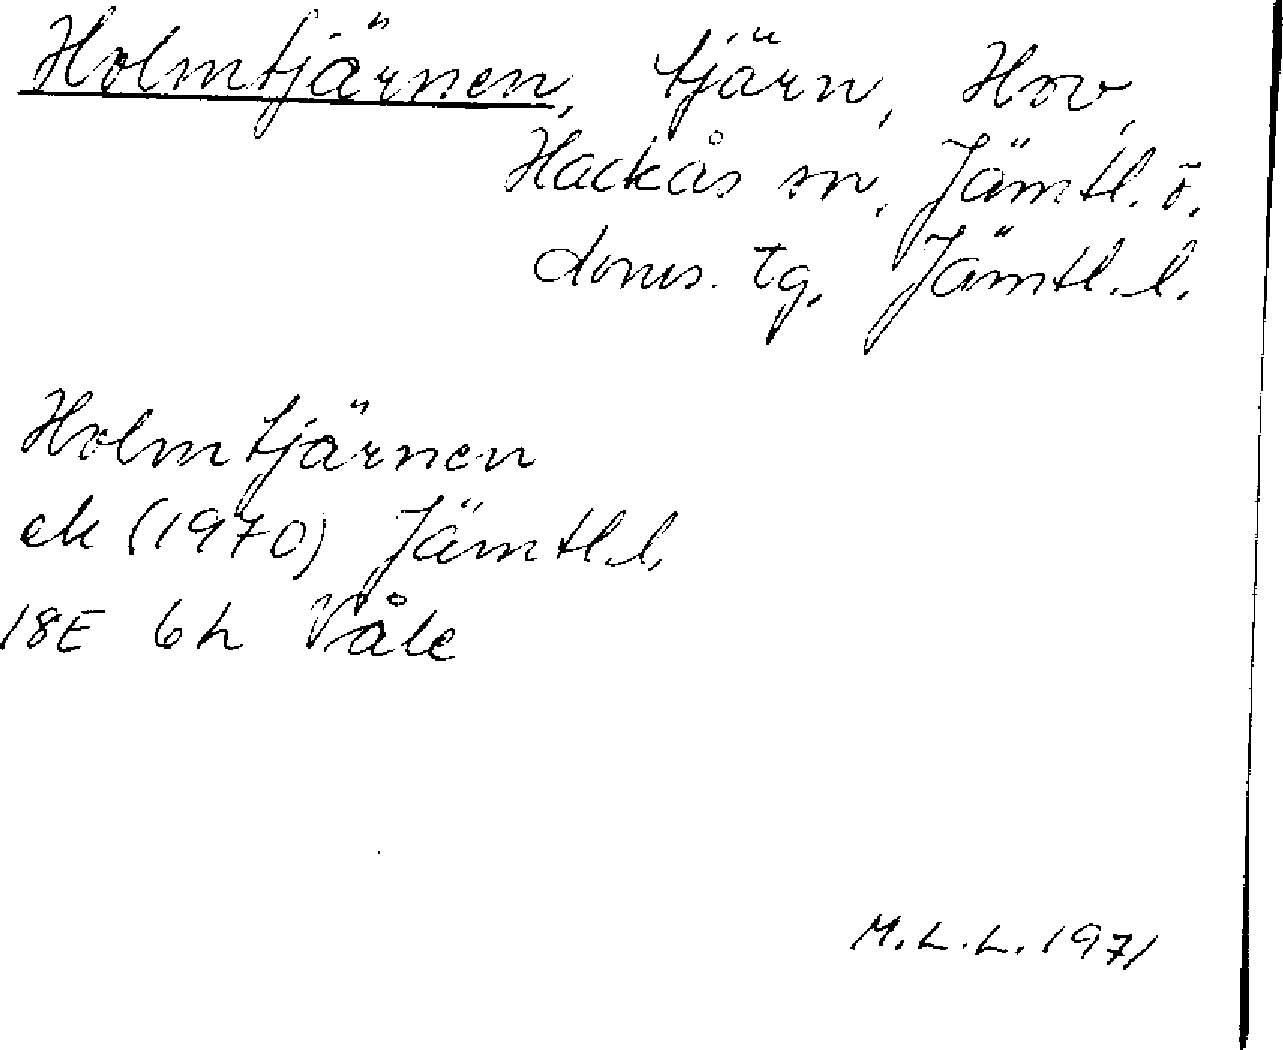 Holmtjärnen, tjärn, Hov,
Hackås sn, Jämtl. ö.
doms. tg, Jämtl. l.
Holmtjärnen
ek (1970) Jämtl. l.
18E 6h Våle
M.L.L. 1971